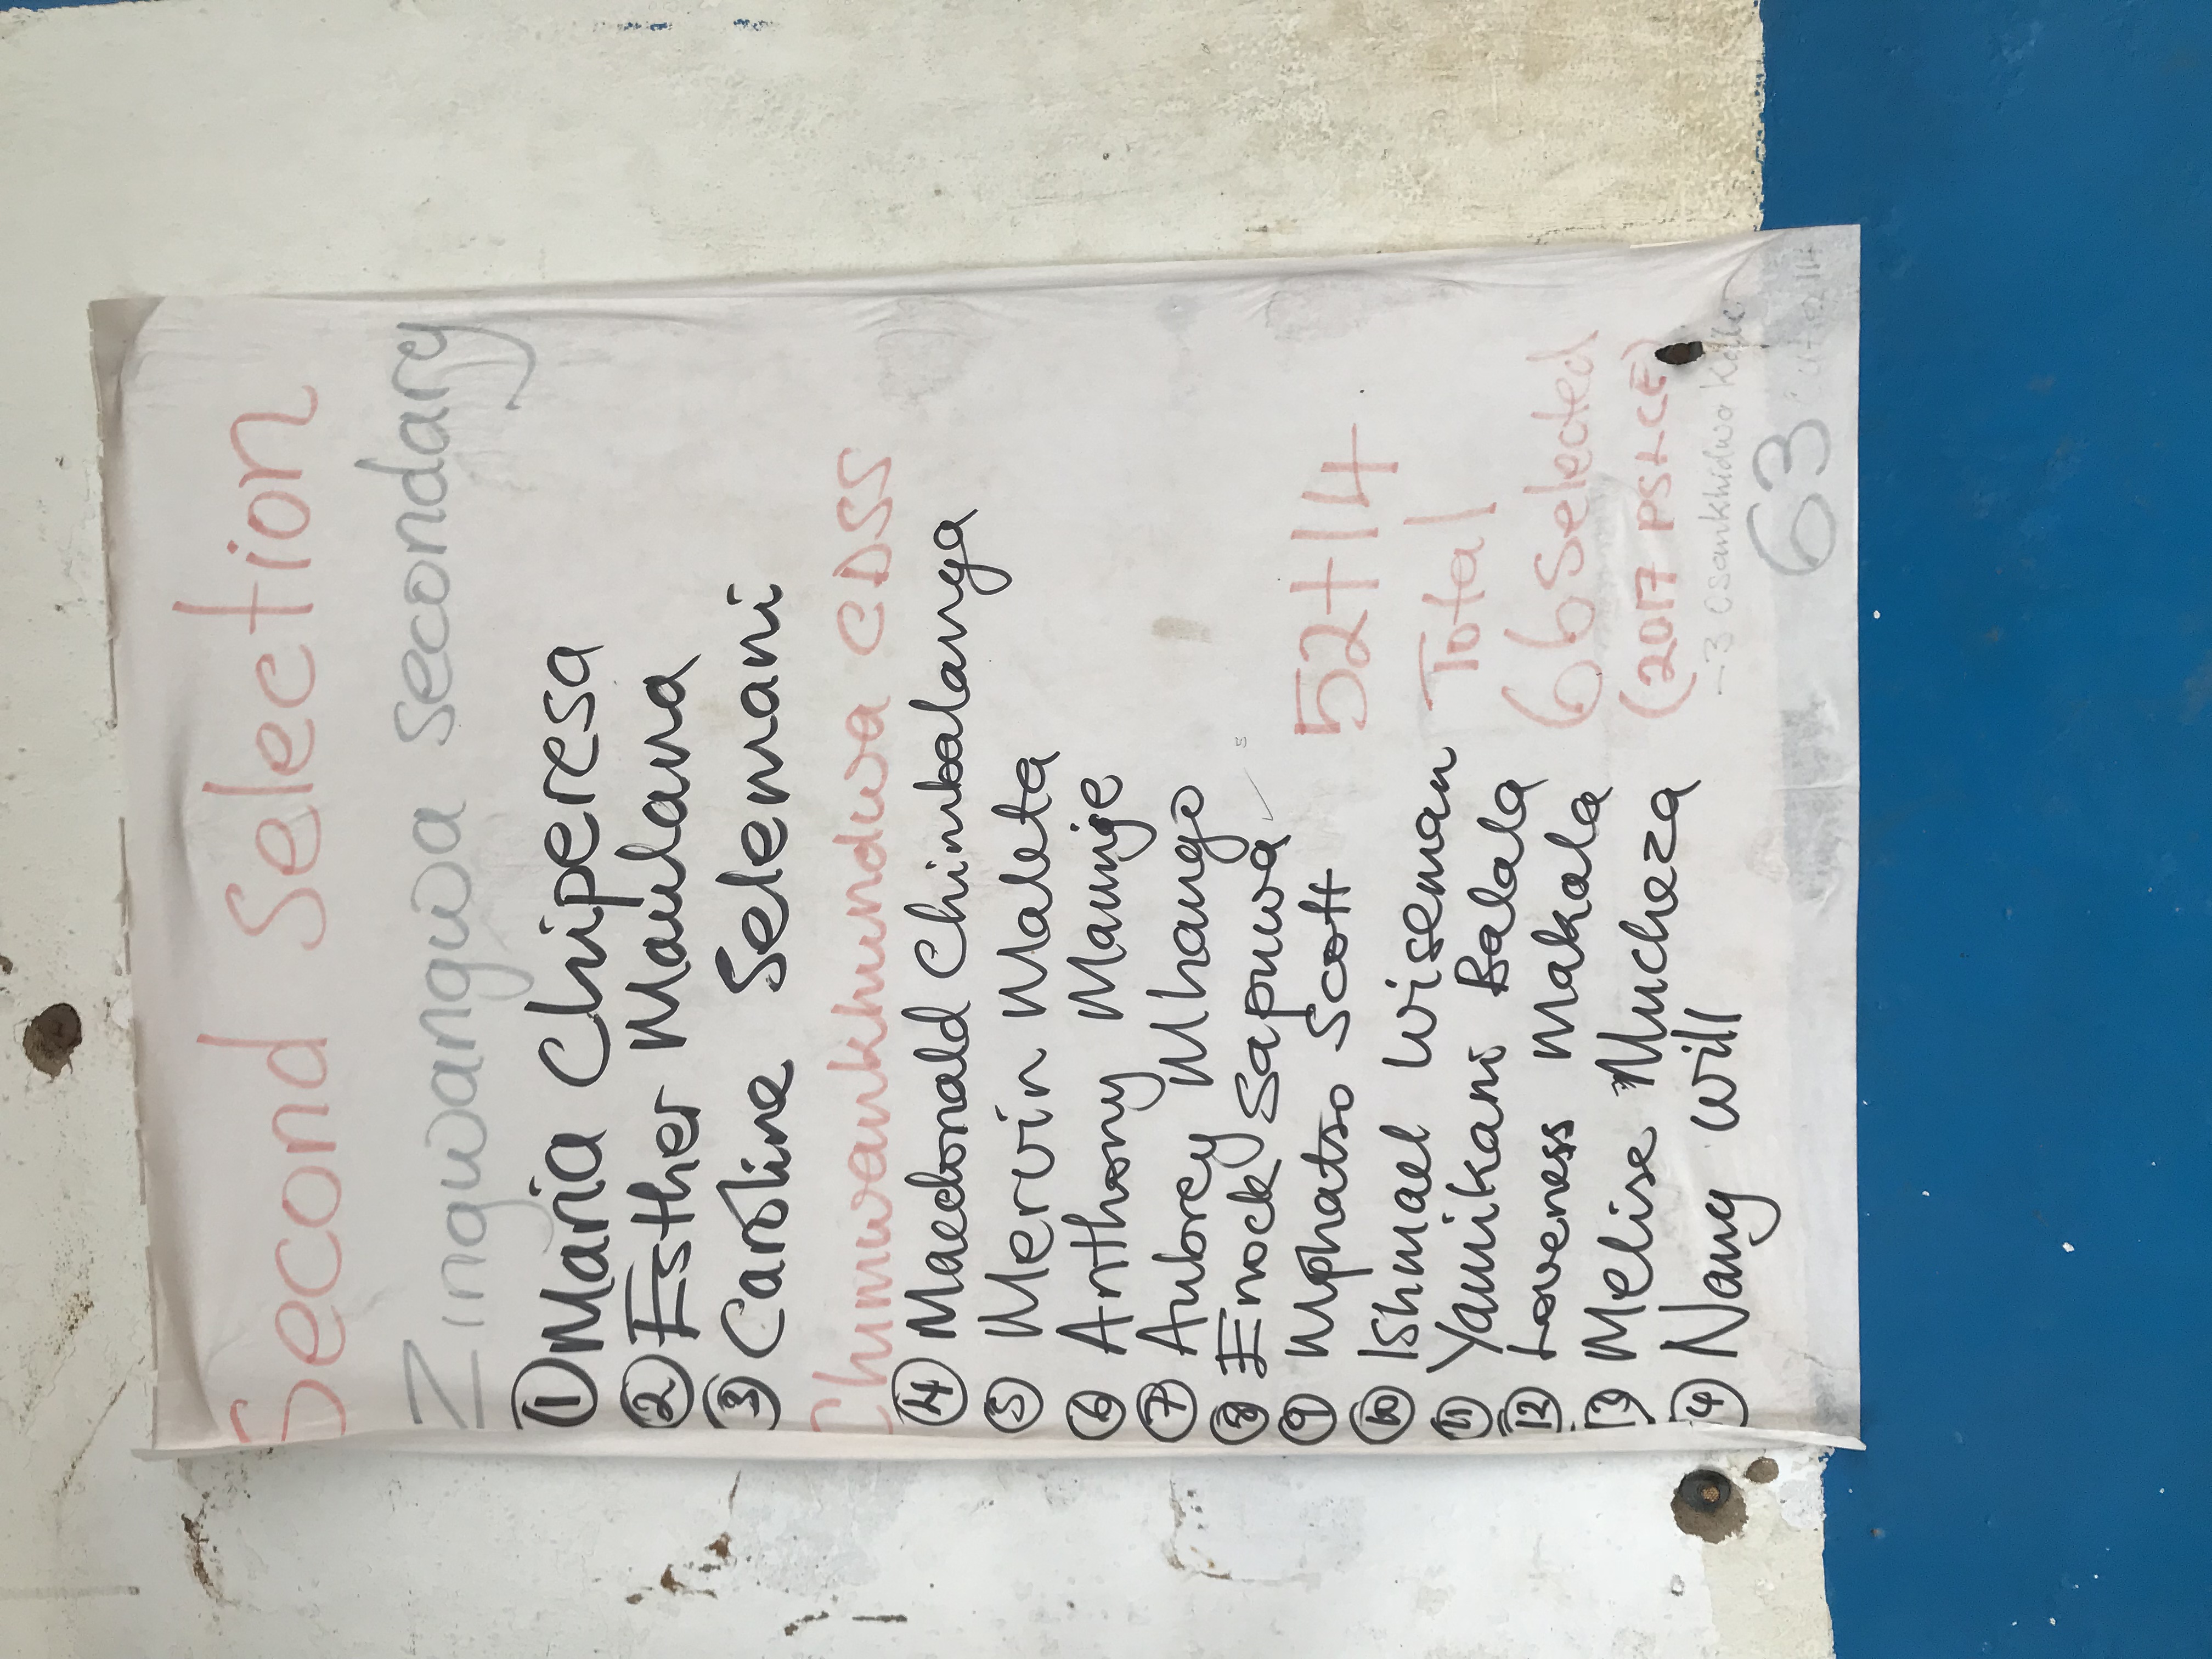 Second Selection
Zingwangwa Secondary
① Maria Chiperesa
② Esther Maulana
③ Caroline Selemani
Chimwankhundwa CDSS
④ Macdonald Chimbalanga
⑤ Mervin Maleta
⑥ Anthony Mannje
⑦ Aubrey Mhango
⑧ Enock Sapuwa
⑨ Mphatso Scott
⑩ Ishmael Wiseman
⑪ Yamikani Balala
⑫ Loveness Makala
13 Melise Mucheza
⑭ Nany Will
52+14
Total
66 Selected
(2017 PSLCE)
-3 osankhidwa kale
63